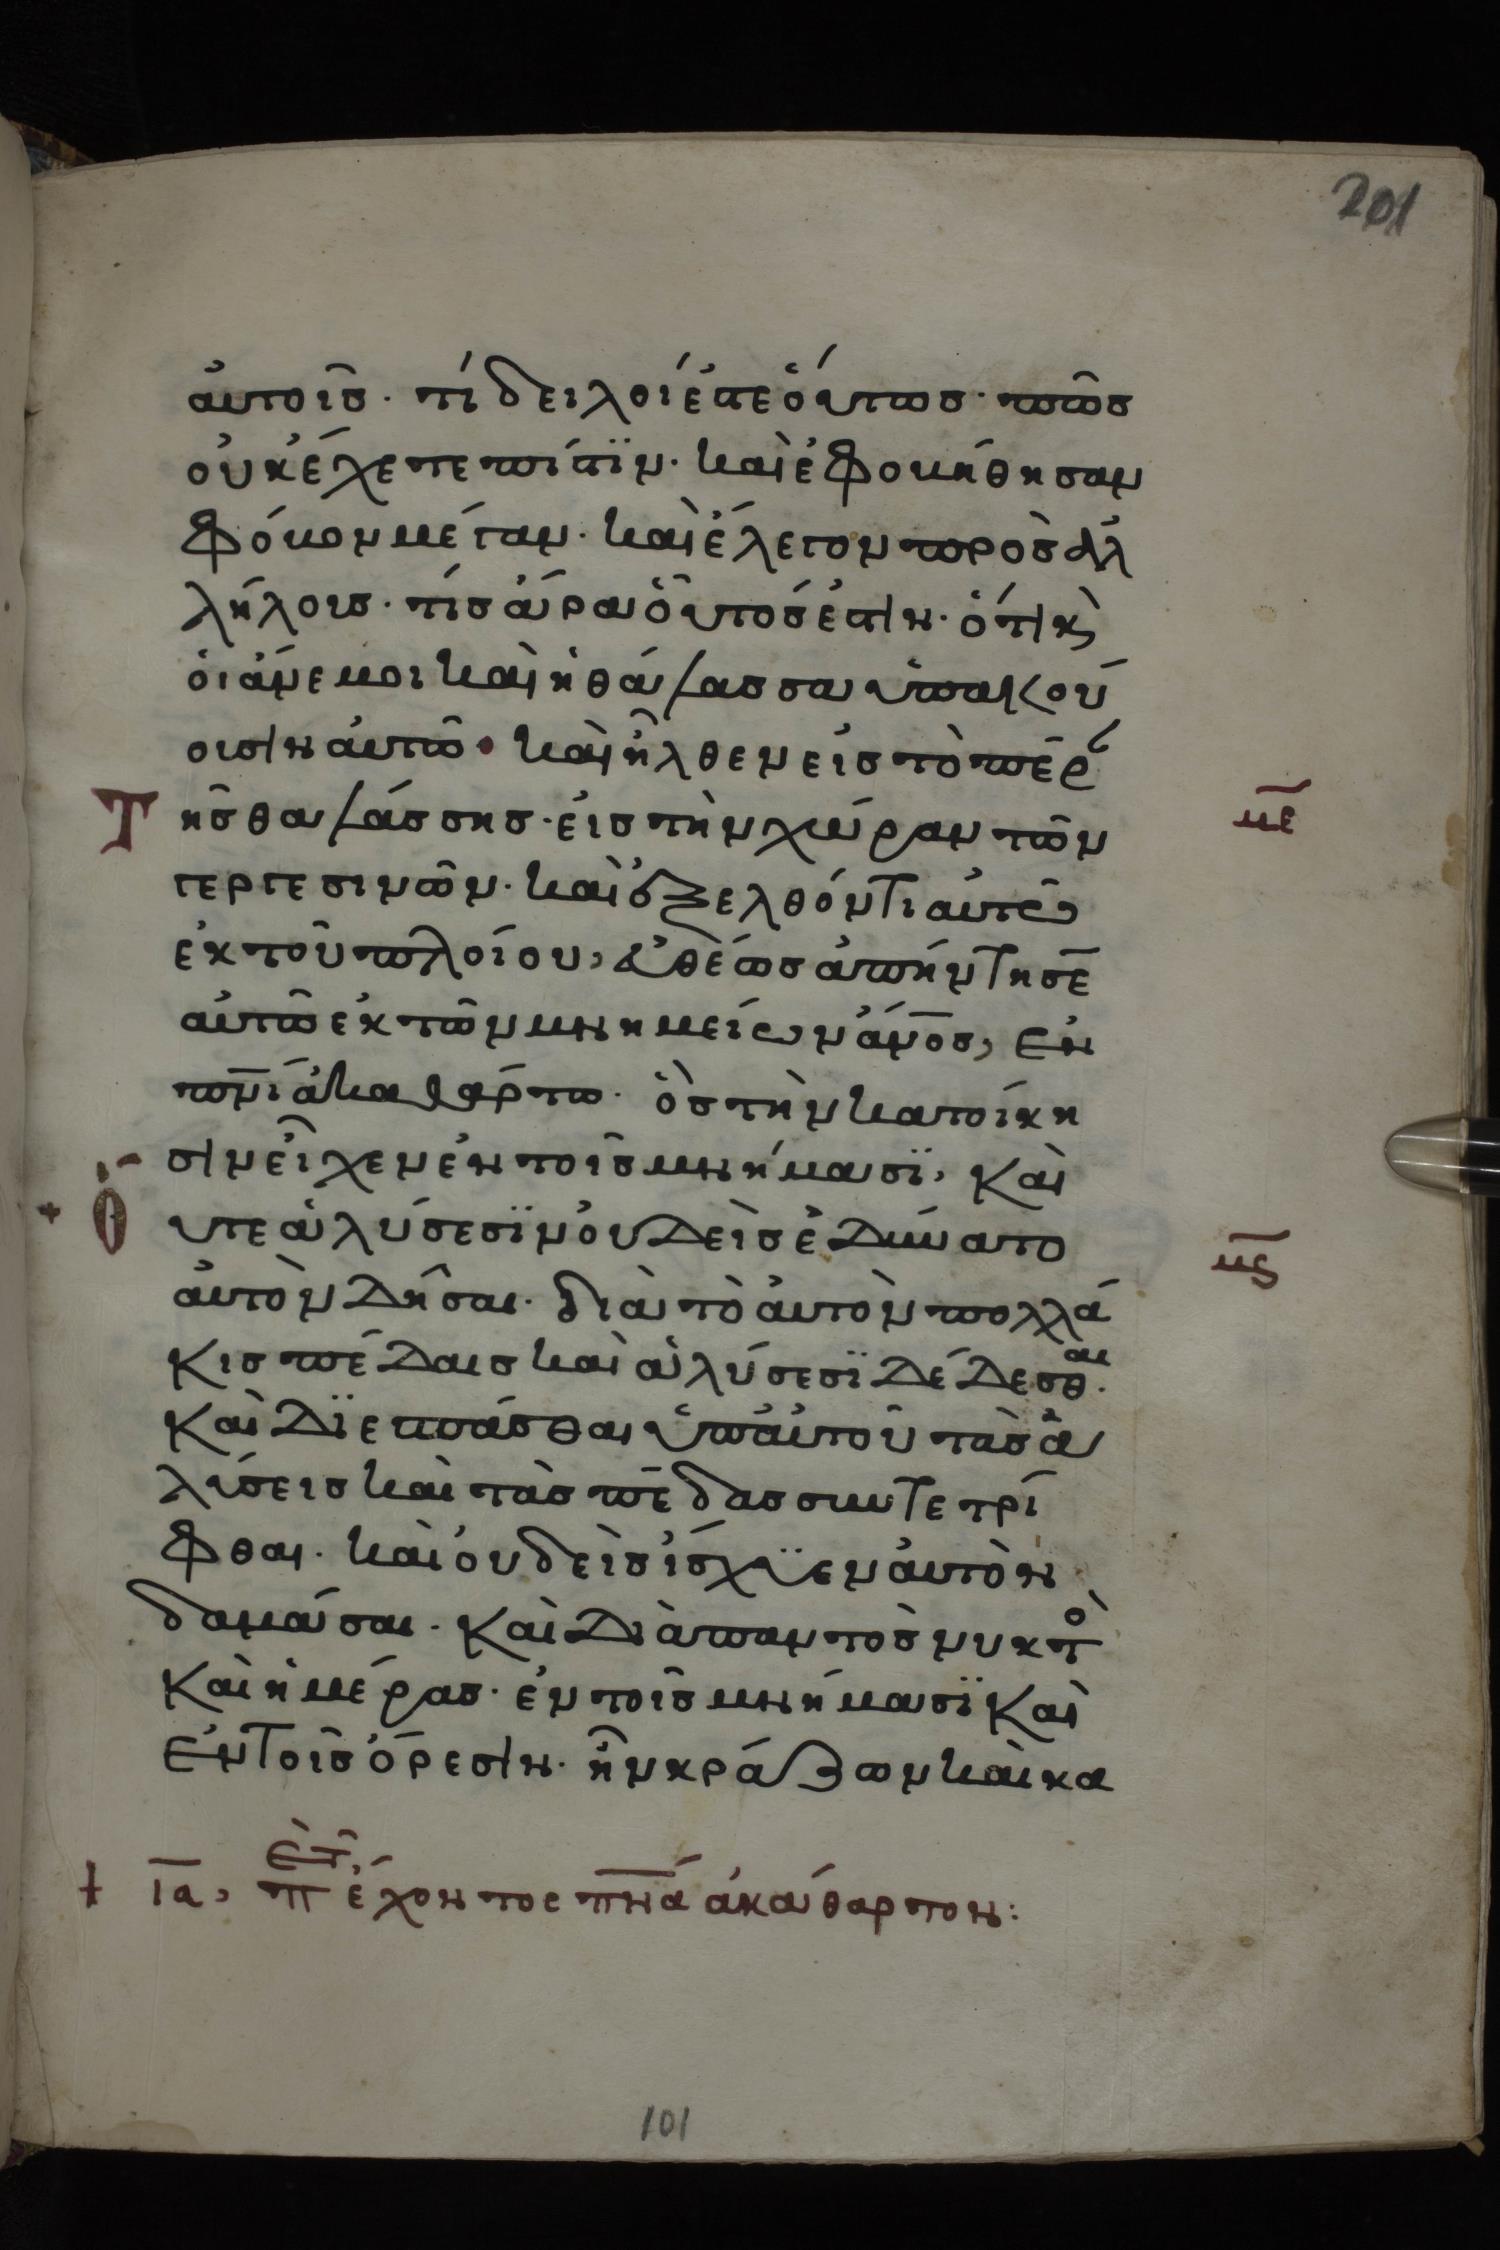 201
ἀυτοῖσ· τί δειλοί ἐστε ὁύτωσ· πῶσ
ὀυκ ἔχετε πίστϊν· καὶ ἐφοβήθησαν
φόβον μέγαν· καὶ ἔλεγον πρὸσ ἀλ
λήλουσ· τίσ ἄρα ὁῦτόσ ἐστιν· ὅτι κ̀
ὁι ἄνεμοι καὶ ἡ θάλασσα ὑπακού
ουσιν ἀυτῶ· καὶ ἦλθεν εἰσ τὸ πέρ
Τ ῆσ θαλάσσησ· ἐισ τὴν χώραν τῶν
με
γεργεσινῶν· καὶ ἐξελθόντι ἀυτῶ
ἐκ τοῦ πλοίου, ἐυθέωσ ἀπήντησε
ἀυτῶ ἐκ τῶν μνημείων ἄνο̅σ, ἐν
πν̅ι ἀκαθάρτω· ὃσ τὴν κατοίκη
σιν εἶχεν ἐν τοῖσ μνήμασϊ, καὶ
+ Ο ὔτε ἁλύσεσϊν ὀυδεὶσ ἐδύνατο
μς
ἀυτὸν δῆσαι· διὰ τὸ ἀυτὸν πολλά
κισ πέδαισ καὶ ἁλύσεσϊ δέδεσθαι·
καὶ διεσπάσθαι ὑπ' ἀυτοῦ τὰσ ἁ
λύσεισ καὶ τὰσ πέδασ συντετρί
φθαι· καὶ ὀυδεὶσ ἴσχϋεν ἀυτὸν
δαμάσαι· καὶ διὰ παντὸσ νυκτὸ
καὶ ἡμέρασ· ἐν τοῖσ μνήμασϊ καὶ
ἐν τοῖσ ὄρεσιν· ἦν κράζων καὶ κα
+ ια, π ἔχοντος πν̅ά ἀκάθαρτον:
101